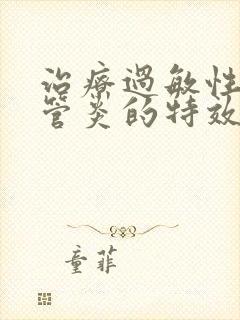 治療過敏性
管炎的特效
童菲